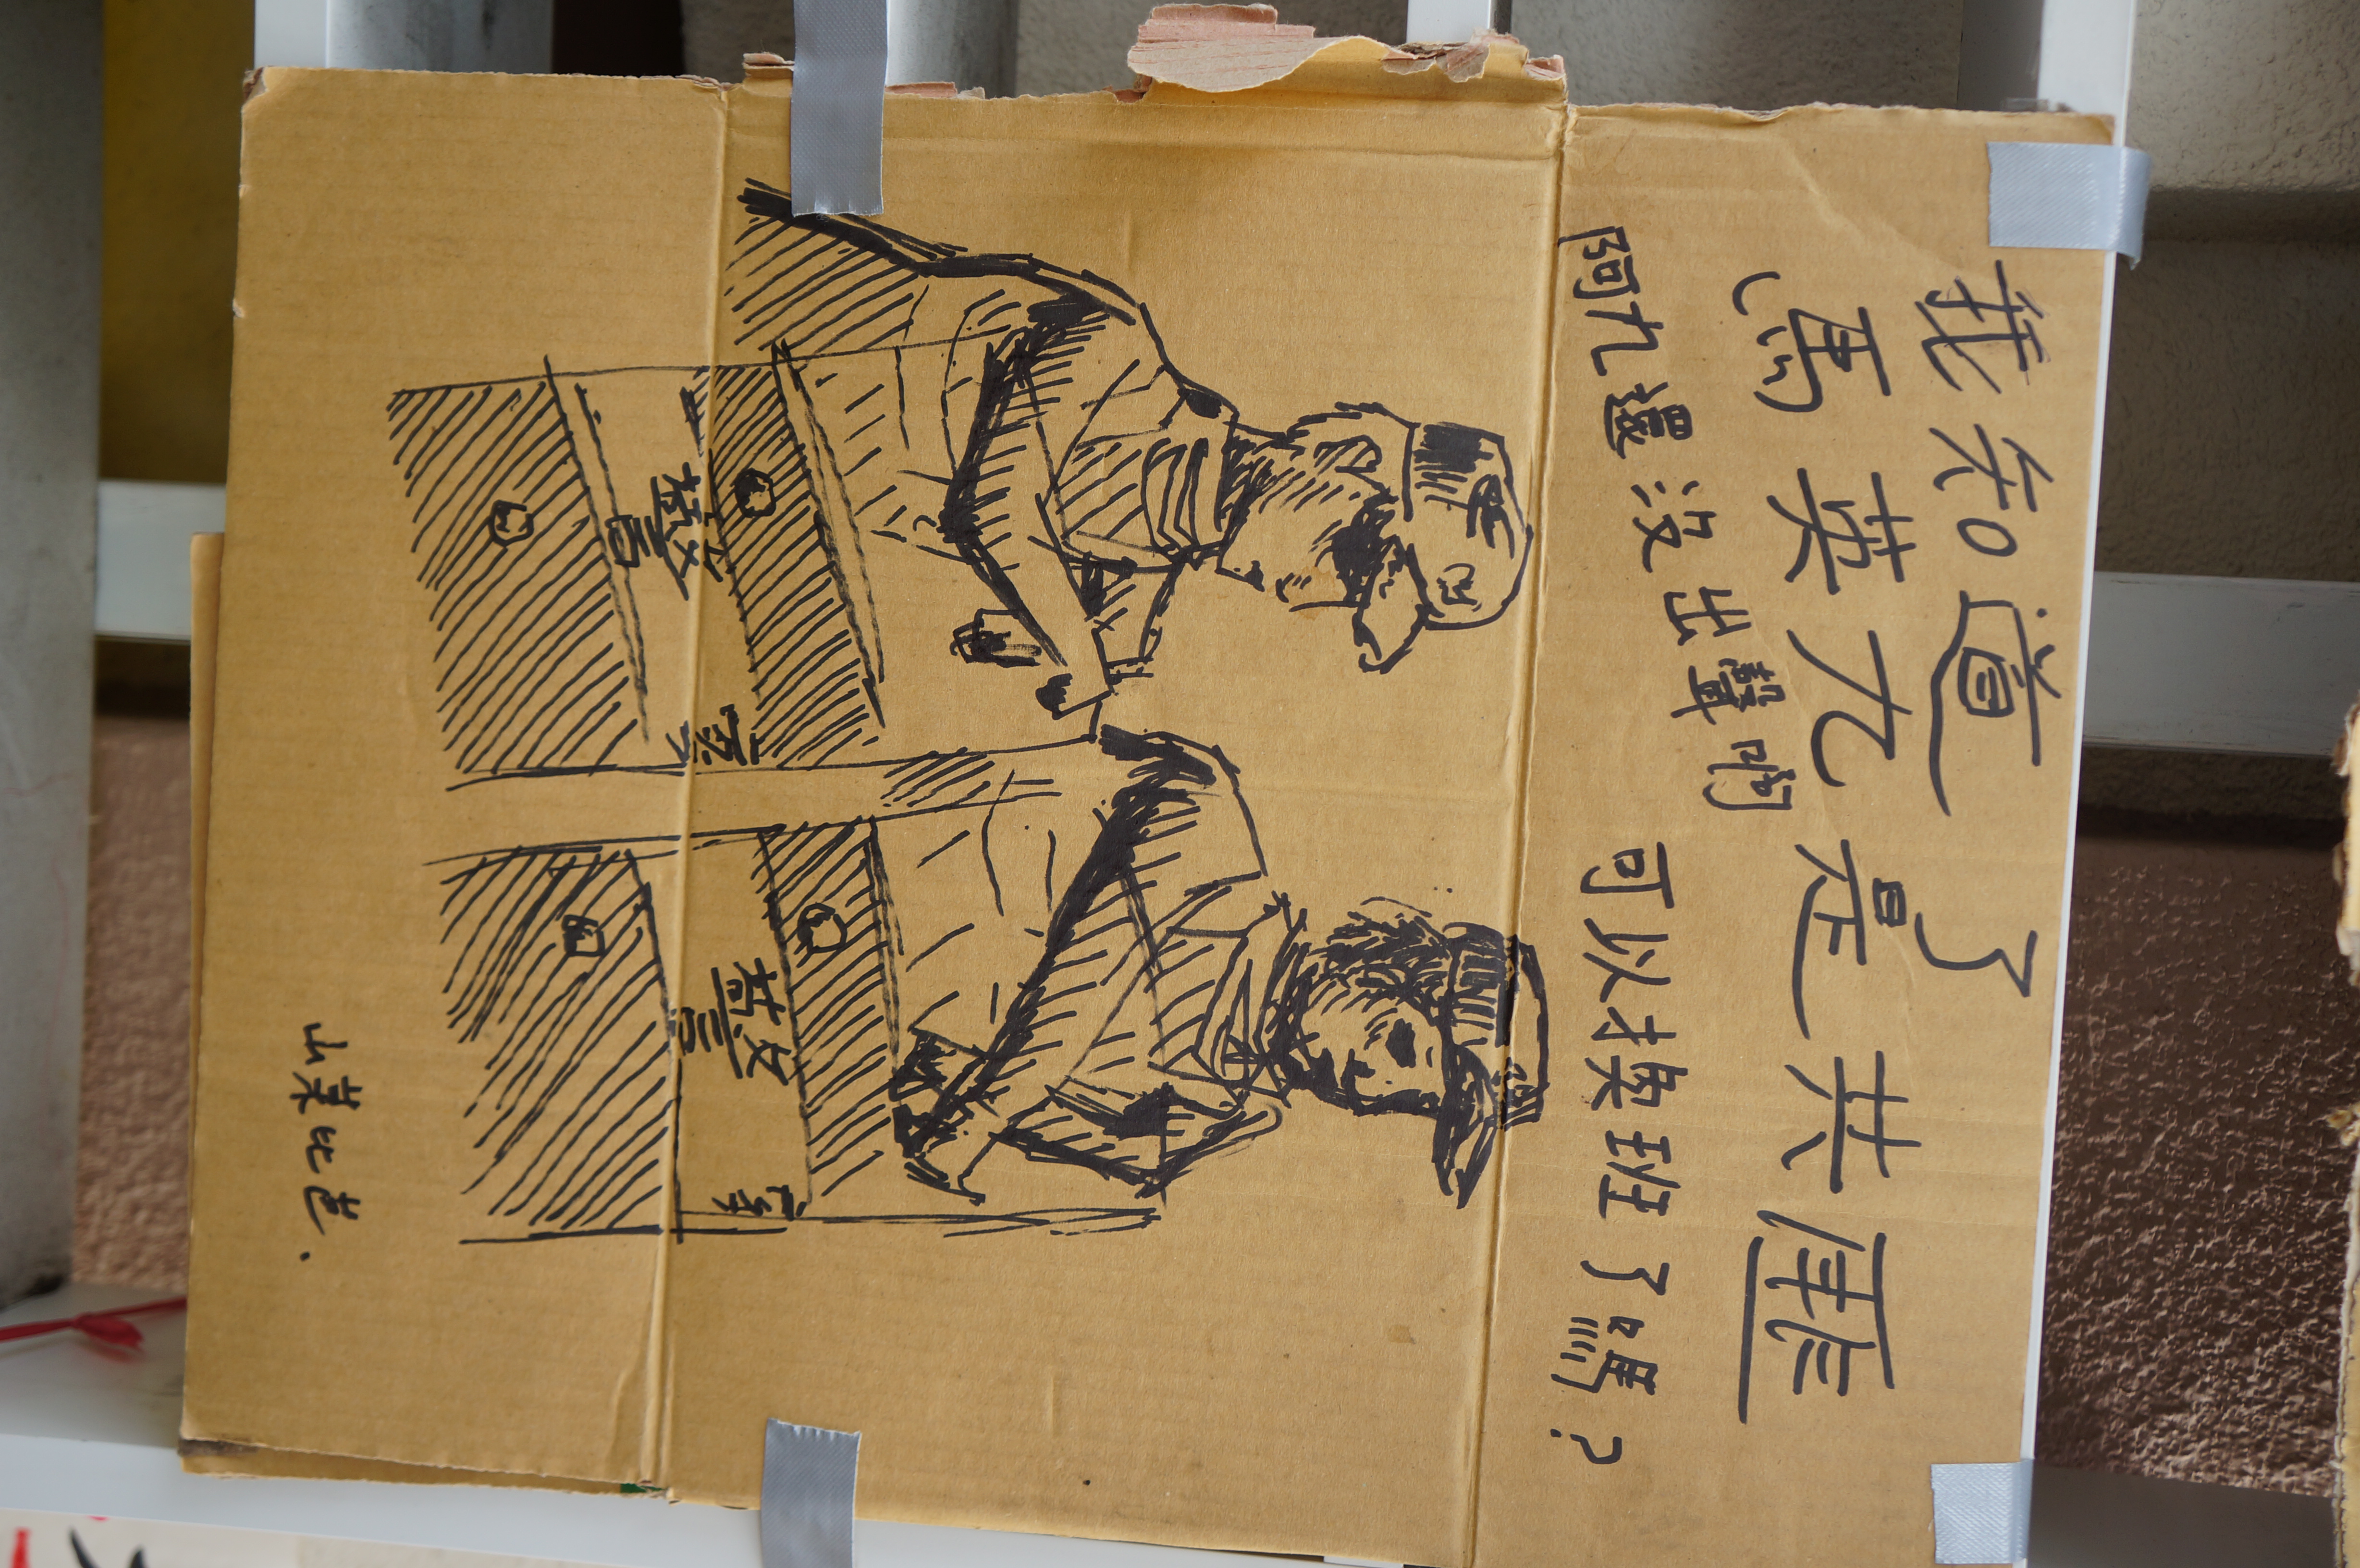 我知道了
馬英九是共匪
阿九還沒出聲啊 可以換班了嗎?
警察
警